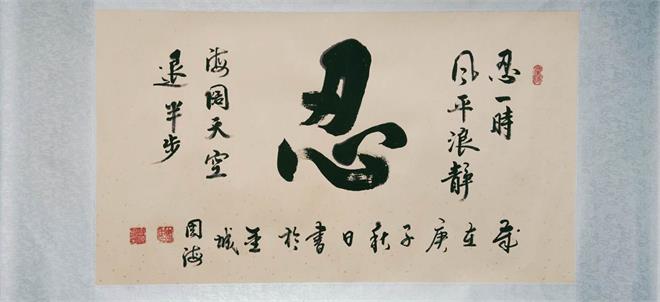 忍一時
风平浪静
忍
海阔天空
退半步
歲在庚子秋日書於城
周海